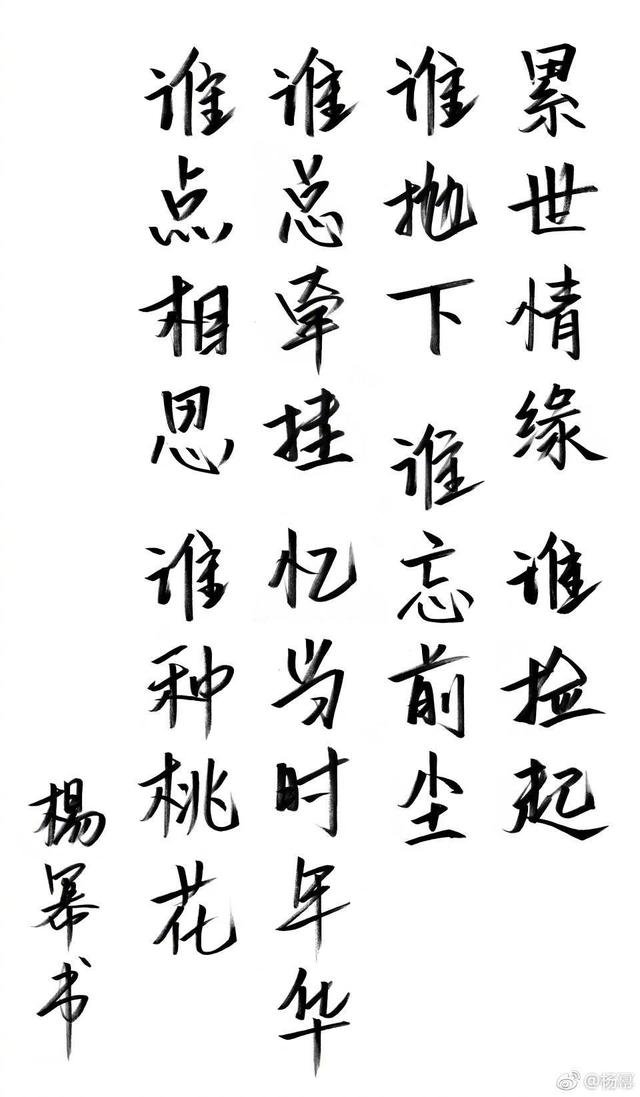 累世情缘 谁捡起
谁抛下 谁忘前尘
谁总牵挂 忆当时年华
谁点相思 谁种桃花
楊幂书
@杨幂